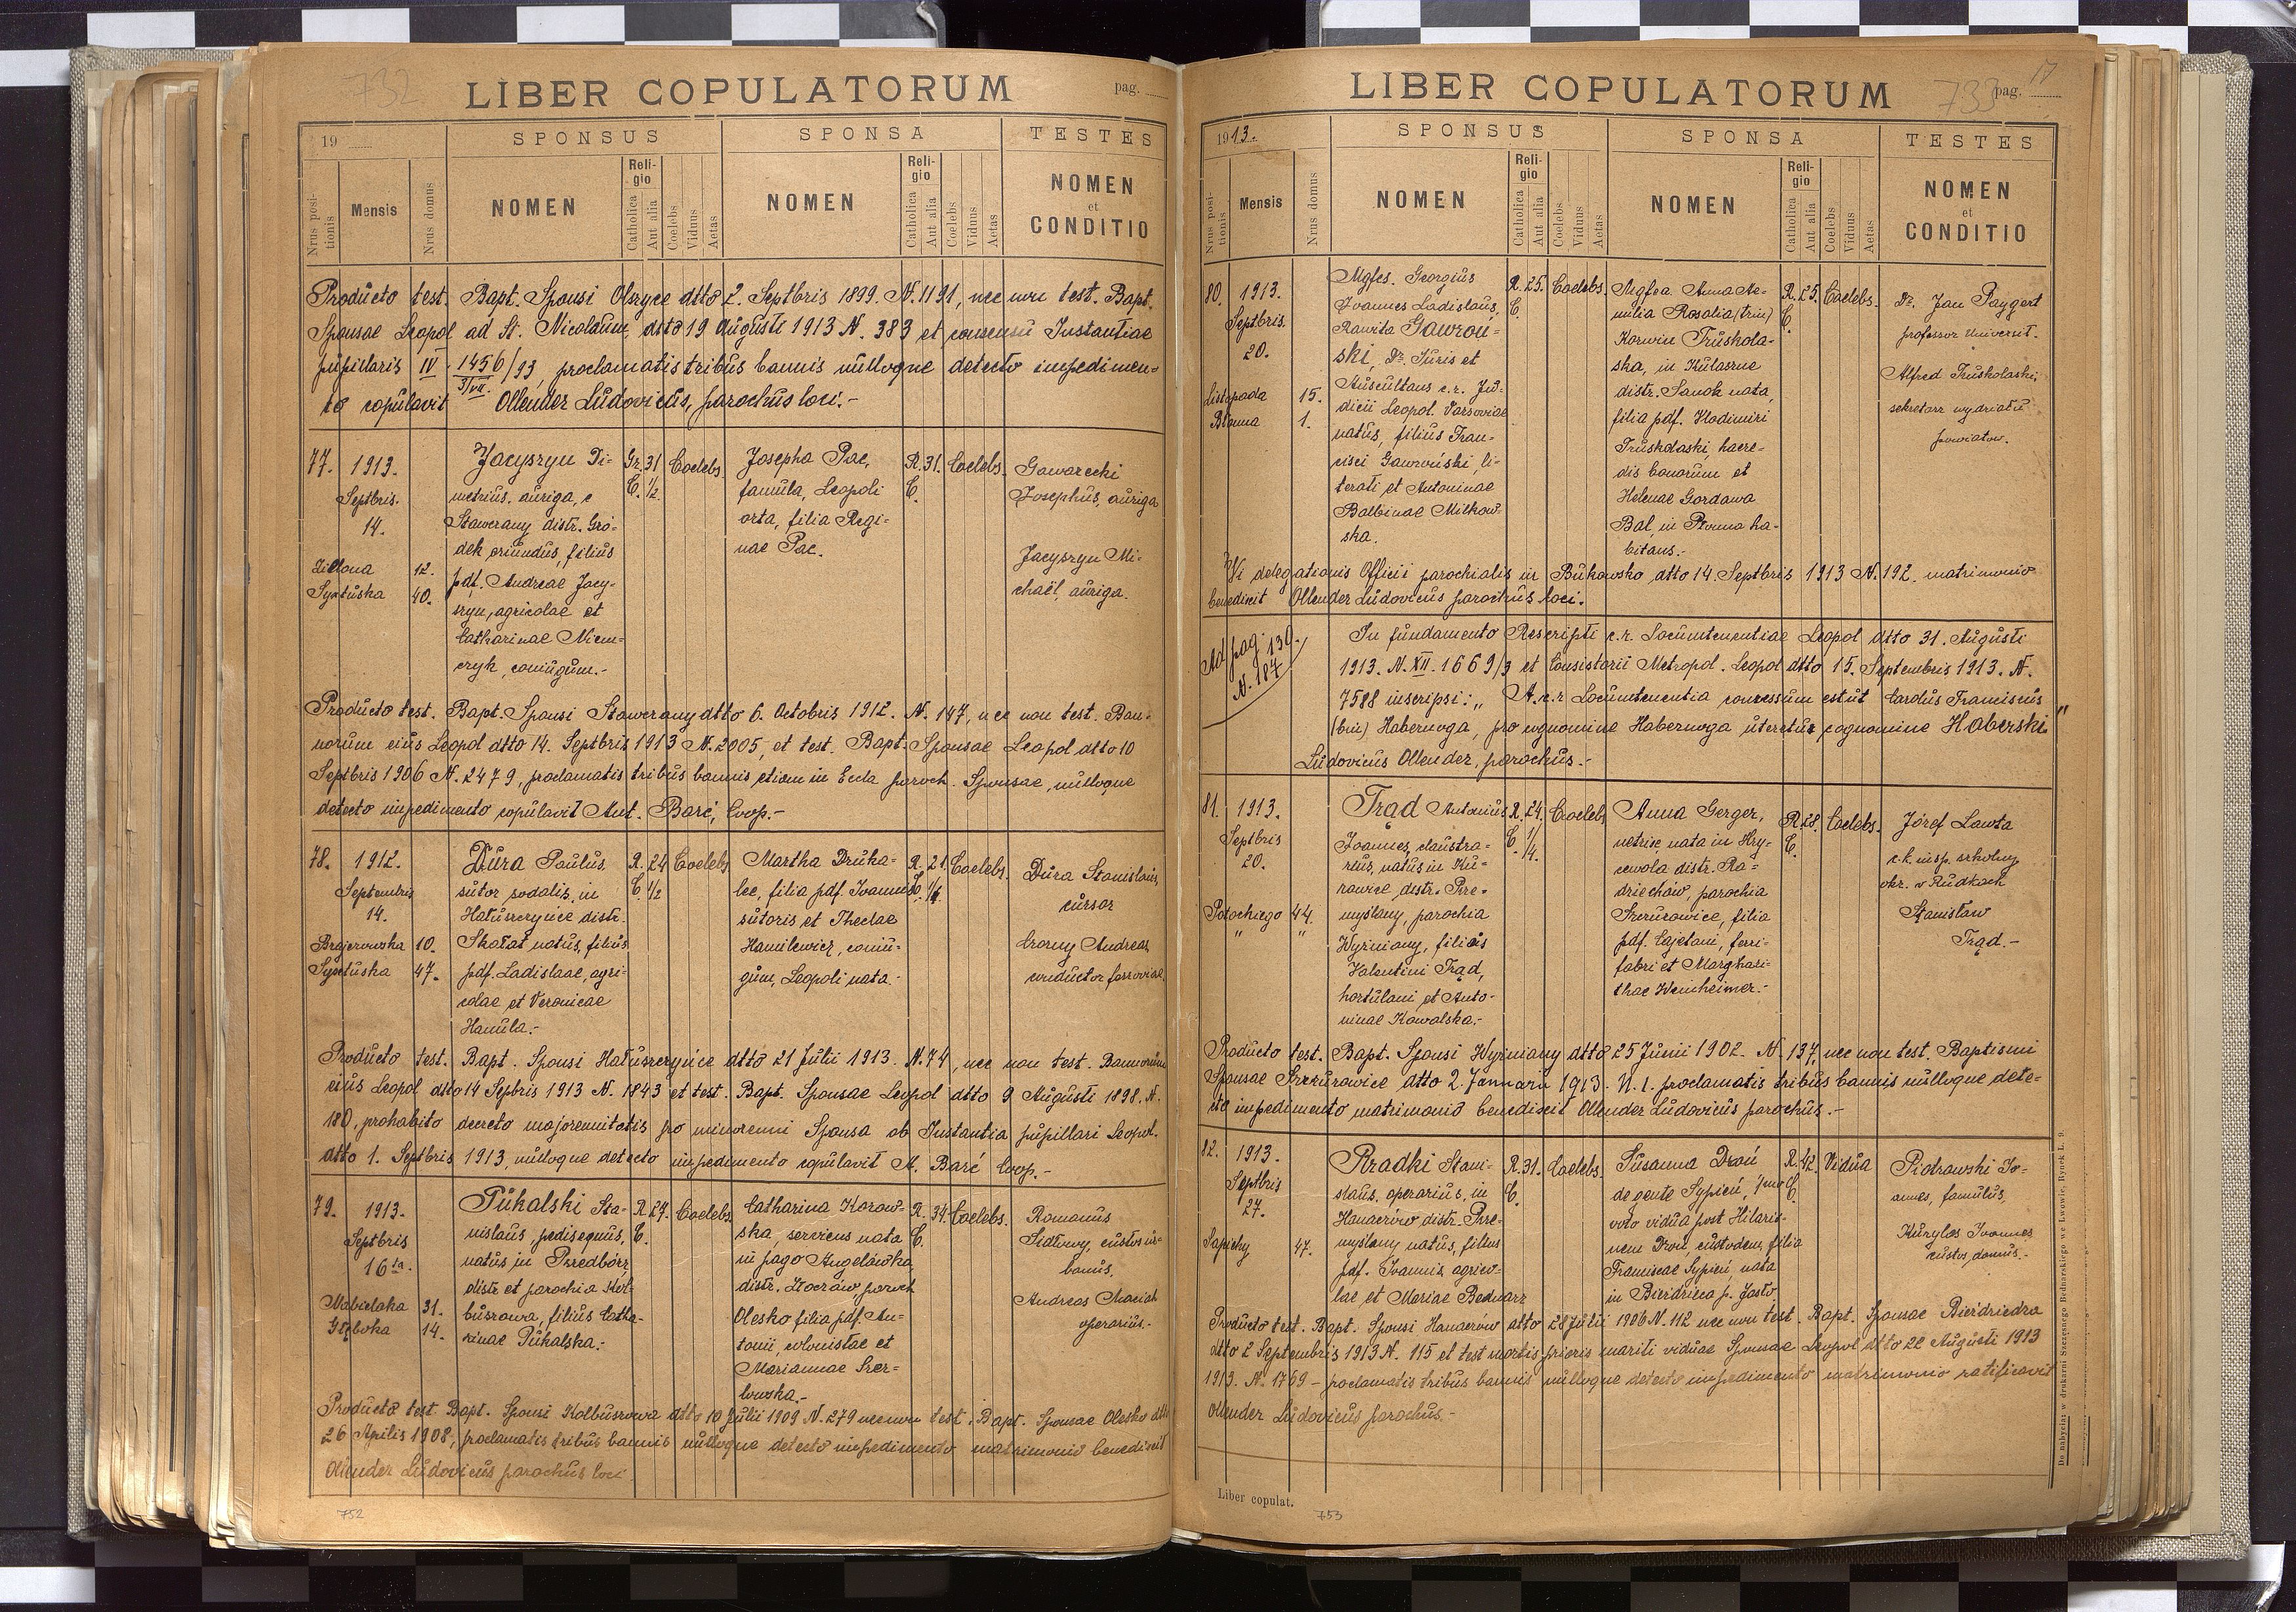 732
LIBER COPULATORUM
pag.
19
SPONSUS
SPONSA
TESTES
Nrus positionis
Mensis
Nrus domus
NOMEN
Religio
Catholica
Aut alia
Coelebs
Viduus
Aetas
NOMEN
Religio
Catholica
Aut alia
Coelebs
Viduus
Aetas
NOMEN
et
CONDITIO
Producto test. Bapt. Sponsi Olszyce dtto 2. Septbris 1899. N. 1191, nec non test. Bapt.
Sponsae Leopol ad St. Nicolaum, dtto 19 Augusti 1913 N. 383 et consensu Instantiae
pupillaris IV 1456/93, proclamatis tribus bannis nulloque detecto impedimen-
3/VII.
to copulavit Ollender Ludovicus, parochus loci.-
77. 1913.
Septbris.
14.
Zielona 12.
Syxtuska 40.
Jacyszyn Di-
metrius, auriga, e
Stawerany distr. Gró-
dek oriundus, filius
pdf. Andreae Jacy-
szyn, agricolae et
Catharinae Niem-
czyk, coniugum.-
Gr. 31 Coelebs
C. 1/2
Josepha Pac,
famula, Leopoli
orta, filia Regi-
nae Pac.
R. 31. Coelebs.
C.
Gawarecki
Josephus, auriga
Jacyszyn Mi-
chaël, auriga.
Producto test. Bapt. Sponsi Stawerany dtto 6. Octobris 1912. N. 147, nec non test. Ban-
norum eius Leopol dtto 14. Septbris 1913 N. 2005, et test. Bapt. Sponsae Leopol dtto 10
Septbris 1906 N. 2479, proclamatis tribus bannis etiam in Eccla paroch. Sponsae, nulloque
detecto impedimento copulavit Ant. Barć, Coop.-
78. 1912.
Septembris
14.
Brajerowska 10.
Syxtuska 47.
Dura Paulus,
sutor sodalis, in
Hałuszczyńce distr.
Skałat natus, filius
pdf. Ladislaae, agri-
colae et Veronicae
Hanula.-
R. 24 Coelebs
C. 1/2
Martha Druka-
lec, filia pdf. Joannis
sutoris et Theclae
Hamilewicz, coniu-
gum, Leopoli nata.-
R. 21. Coelebs.
C. 1/4.
Dura Stanislaus,
cursor
Czorny Andreas
conductor ferroviae.
Producto test. Bapt. Sponsi Hałuszczyńce dtto 21 Julii 1913. N. 74, nec non test. Bannorum
eius Leopol dtto 14 Sepbris 1913 N. 1843 et test. Bapt. Sponsae Leopol dtto 9 Augusti 1898. N.
180, prohabito decreto majorennitatis pro minorenni Sponsa ab Instantia pupillari Leopol.
dtto 1. Septbris 1913, nulloque detecto impedimento copulavit A. Barć Coop.-
79. 1913.
Septbris
16ta.
Nabielaka 31.
Głęboka 14.
Pukalski Sta-
nislaus, pedisequus,
natus in Przedbórz,
distr. et parochia Kol-
buszowa, filius Catha-
rinae Pukalska.-
R. 27. Coelebs
C.
Catharina Koraw-
ska, serviens nata
in pago Angelówka,
distr. Złoczów, paroch
Olesko filia pdf. An-
tonii, colonistae et
Mariannae Szer-
lowska.-
R. 34. Coelebs.
C.
Romanus
Sidlowy, custos ur-
banus,
Andreas Maciah
operarius.-
Producto test. Bapt. Sponsi Kolbuszowa dtto 10 Julii 1909 N. 279 nec non test. Bapt. Sponsae Olesko dtto
26 Aprilis 1908, proclamatis tribus bannis nulloque detecto impedimento matrimonio benedixit
Ollender Ludovicus parochus loci.
752
17
733
LIBER COPULATORUM
pag.
1913.
SPONSUS
SPONSA
TESTES
Nrus positionis
Mensis
Nrus domus
NOMEN
Religio
Catholica
Aut alia
Coelebs
Viduus
Aetas
NOMEN
Religio
Catholica
Aut alia
Coelebs
Viduus
Aetas
NOMEN
et
CONDITIO
80. 1913.
Septbris.
20.
Listopada 15.
Płonna 1.
Mgfcs. Georgius
Joannes Ladislaus,
Rawita Gawroń-
ski, Dr. Juris et
Auscultans c.r. Ju-
dicii Leopol. Varsoviae
natus, filius Fran-
cisci Gawroński, li-
terati et Antoninae
Balbinae Milkow-
ska.
R. 25. Coelebs.
C.
Mgfca Anna Ae-
milia Rosalia (trin)
Korwin Truskola-
ska, in Kulaszne
distr. Sanok nata,
filia pdf. Wlodimiri
Truskolaski, haere-
dis bonorum et
Helenae Gozdawa
Bal, in Płonna ha-
bitans.-
R. 25. Coelebs.
C.
Dr. Jan Paygert
professor Universit.
Alfred Truskolaski,
sekretarz wydziału
powiatow.
Vi delegationis Officii parochialis in Bukowsko dtto 14. Septbris 1913 N. 192. matrimonio
benedixit Ollender Ludovicus parochus loci.
Ad pag. 139.
N. 187
In fundamento Rescripti c.r. Locumtenentiae Leopol dtto 31. Augusti
1913. N. XII. 1669/3 et Consistorii Metropol. Leopol dtto 15. Septembris 1913. N.
7588 inscripsi: „A c.r. Locumtenentia concessum est ut Carolus Franciscus
(bin) Habernoga, pro cognomine Habernoga uteretur cognomine Haberski."
Ludovicus Ollender, parochus.-
81. 1913.
Septbris
20.
Potockiego 44.
" "
Trąd Antonius
Joannes, claustra-
rius, natus in Ku-
rowice, distr. Prze-
myślany, parochia
Wyżniany, filius
Valentini Trąd,
hortulani et Anto-
ninae Kowalska.-
R. 24. Coelebs
C. 1/4.
Anna Gerger,
nutrix, nata in Hry-
cewola distr. Ra-
dziechów, parochia
Szczurowice, filia
pdf. Cajetani, ferri-
fabri et Marghari-
thae Weinheimer.-
R. 28. Coelebs.
C.
Józef Lawta
c.k. insp. szkolny
okr. w Rudkach
Stanisław
Trąd.-
Producto test. Bapt. Sponsi Wyżniany dtto 25 Junii 1902. N. 137, nec non test. Baptismi
Sponsae Szczurowice dtto 2. Januarii 1913. N. 1. proclamatis tribus bannis nulloque dete-
cto impedimento matrimonio benedixit Ollender Ludovicus parochus.-
82. 1913.
Septbris
27.
Sapiehy 47.
Rzadki Stani-
slaus, operarius, in
Hanaczów distr. Prze-
myślany natus, filius
pdf. Joannis, agrico-
lae et Mariae Bednarz
R. 31. Coelebs.
C.
Susanna Droń
de gente Sypień, 1mo
voto vidua post Hilario-
nem Droń, custodem, filia
Franciscae Sypień, nata
in Bieździeca p. Jasło.
R. 42. Vidua
C.
Piotrowski Jo-
annes, famulus,
Kurylos Joannes
custos domus.-
Producto test. Bapt. Sponsi Hanaczów dtto 28 Julii 1906 N. 112 nec non test. Bapt. Sponsae Bieździedza
dtto 2 Septembris 1913 N. 115 et test mortis prioris mariti viduae Sponsae Leopol dtto 22 Augusti 1913
1913. N. 1769 - proclamatis tribus bannis nulloque detecto impedimento matrimonio ratificavit
Ollender Ludovicus parochus.-
Liber copulat.
753
Do nabycia w drukarni Szczęsnego Bednarskiego we Lwowie, Rynek L. 9.